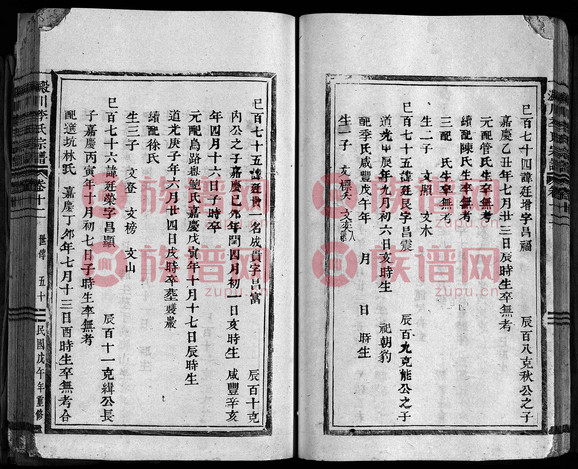 巳百七十四諱廷增字昌福 辰百八克秋公之子
嘉慶乙丑年七月廿三日辰時生卒無考
元配管氏生卒無考
續配陳氏生卒無考
生二子 文照 文木
巳百七十五諱廷良字昌震 辰百九克能公之子
道光甲辰年九月初六日亥時生 祀朝豹
配季氏咸豐 年 月 日 時生
生一子
巳百七十五諱廷世一名成貴字昌富 辰百十克
內公之子嘉慶己卯年閏四月初一日亥時生 咸豐辛亥
年四月十六日子時卒
元配烏路樊鮑氏嘉慶戊寅年十月十七日辰時生
道光庚子年六月廿四日戌時卒墓
續配徐氏
生三子 文登 文榜 文山
巳百七十六諱廷榮字昌顯 辰百十一克緝公長
子嘉慶丙寅年十月初七日子時生卒無考
配 坑林氏 嘉慶丁卯年七月十三日酉時生卒無考合
川李氏宗譜 卷十一 世傳 五十 民國戊午年重修
族谱网
zupu.cn